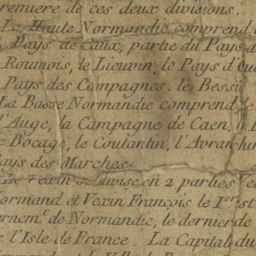 remiere de ces deux divisions.
La Haute Normandie comprend l
Pays de Caux, partie du Pays d
Roumois, le Lieuvin, le Pays d'Ou
Pays des Campagnes, le Bessi
La Basse Normandie comprend le
l'Auge, la Campagne de Caen, l
Bocage, le Coutantin, l'Avranchin
ays des Marches
Le Vexin se divise en 2 parties Ve
ormand et Vexin François le I.er est
ernem.t de Normandie, le dernier de
l'Isle de France La Capital du